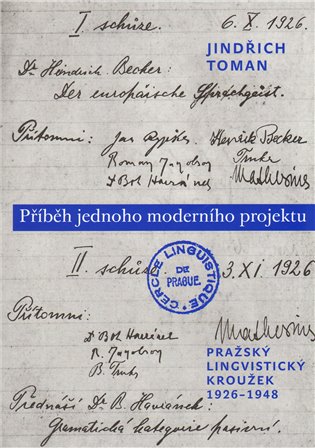 I schůze. 6. X. 1926.
JINDŘICH
TOMAN
Dr Hendrich Becker:
Der europäische Sprachgeist.
Přítomni: Jan Rypka Henrik Becker
Roman Jagobson Trnka
Dr Boh Havránek Mathesius
Příběh jednoho moderního projektu
II schůze. 3. XI 1926
CERCLE LINGUISTIQUE
DE
PRAGUE
Přítomni:
Dr Boh Havránek Mathesius
R. Jagobson
B. Trnka
PRAŽSKÝ
LINGVISTICKÝ
KROUŽEK
1926–1948
Přednáší Dr B. Havránek:
Gramatická kategorie pasivní.